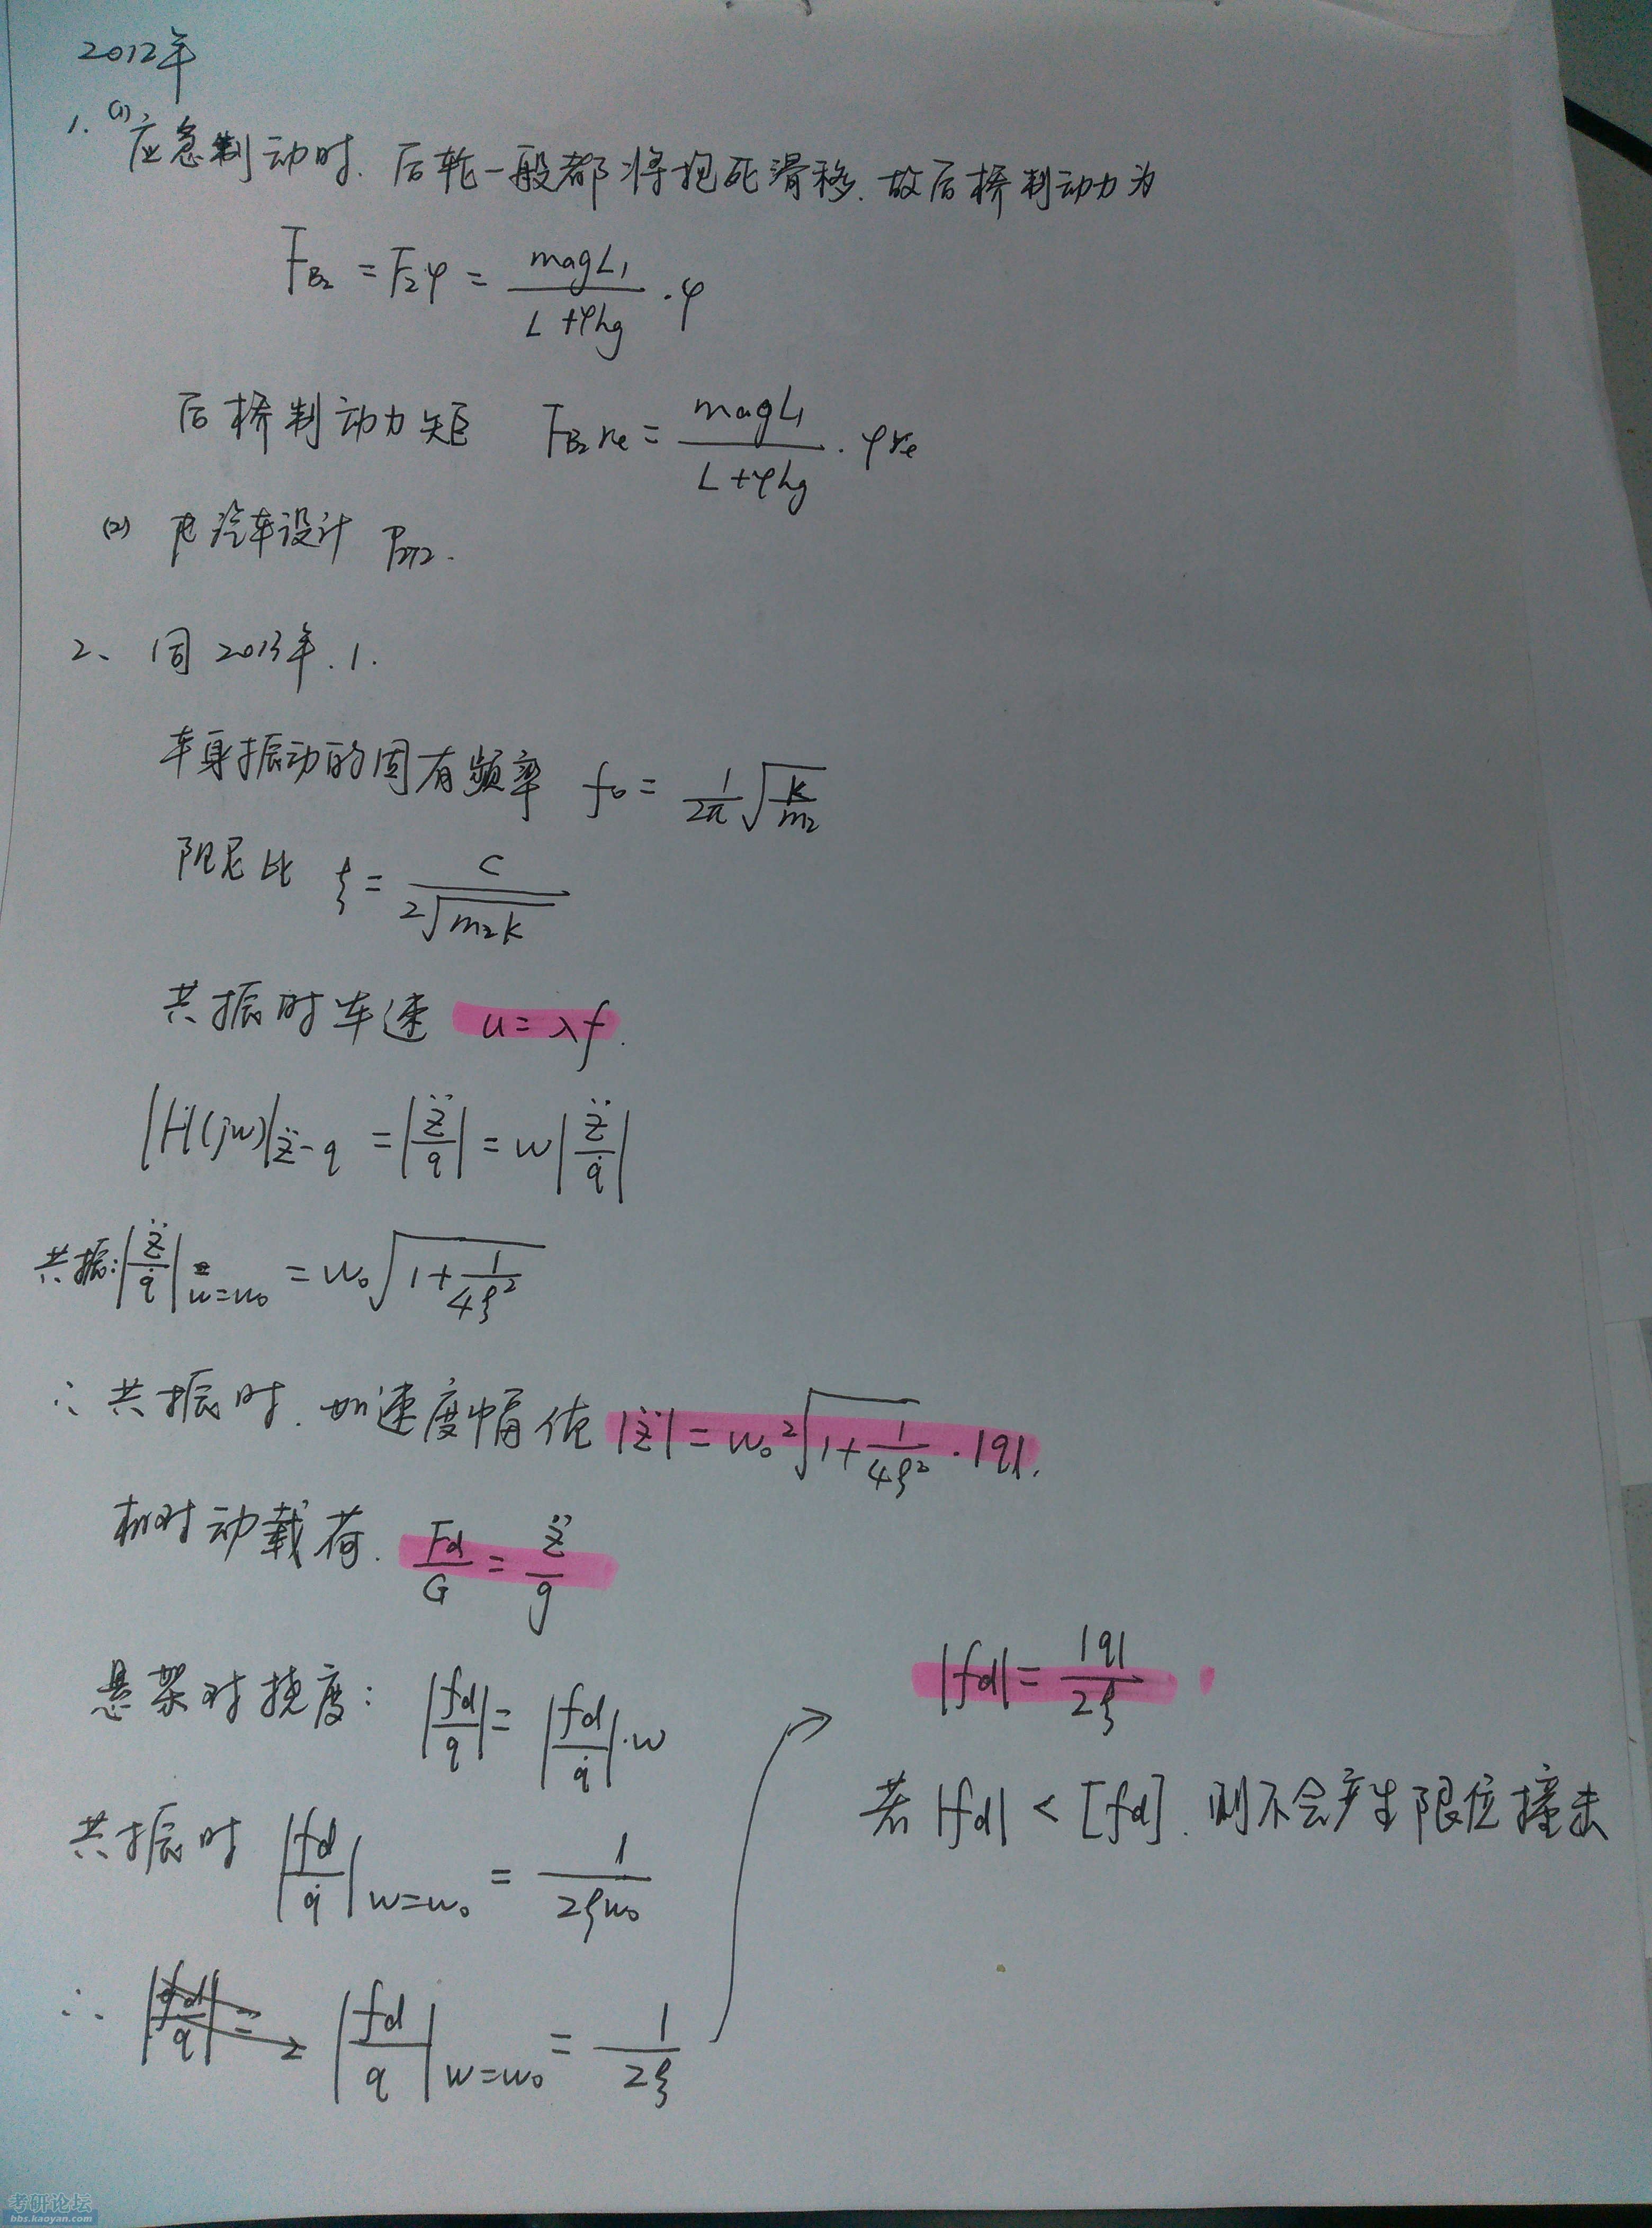 2012年
1. (1) 应急制动时. 后轮一般都将抱死滑移. 故后桥制动力为
F_{B2} = F_2φ = \frac{magL_1}{L+φhg} · φ
后桥制动力矩 F_{B2}r_e = \frac{magL_1}{L+φhg} · φr_e
(2) 汽车设计 P272.
2、同2013年.1.
车身振动的固有频率 f_0 = \frac{1}{2π}\sqrt{\frac{K}{m_2}}
阻尼比 ξ = \frac{C}{2\sqrt{m_2K}}
共振时车速 u=λf.
|H(jw)|_{\ddot{z}-q} = |\frac{\ddot{z}}{q}| = w|\frac{\ddot{z}}{\dot{q}}|
共振: |\frac{\ddot{z}}{\dot{q}}|_{w=w_0} = w_0\sqrt{1+\frac{1}{4ξ^2}}
∴ 共振时. 加速度幅值 |\ddot{z}| = w_0^2\sqrt{1+\frac{1}{4ξ^2}} · |q|.
相对动载荷. \frac{Fd}{G} = \frac{\ddot{z}}{g}
悬架对挠度: |\frac{fd}{q}| = |\frac{fd}{\dot{q}}|·w
共振时 |\frac{fd}{\dot{q}}|_{w=w_0} = \frac{1}{2ξw_0}
∴ |\frac{fd}{q}|_{w=w_0} = \frac{1}{2ξ}
|fd| = \frac{|q|}{2ξ}
若 |fd| < [fd]. 则不会产生限位撞击
考研论坛
bbs.kaoyan.com